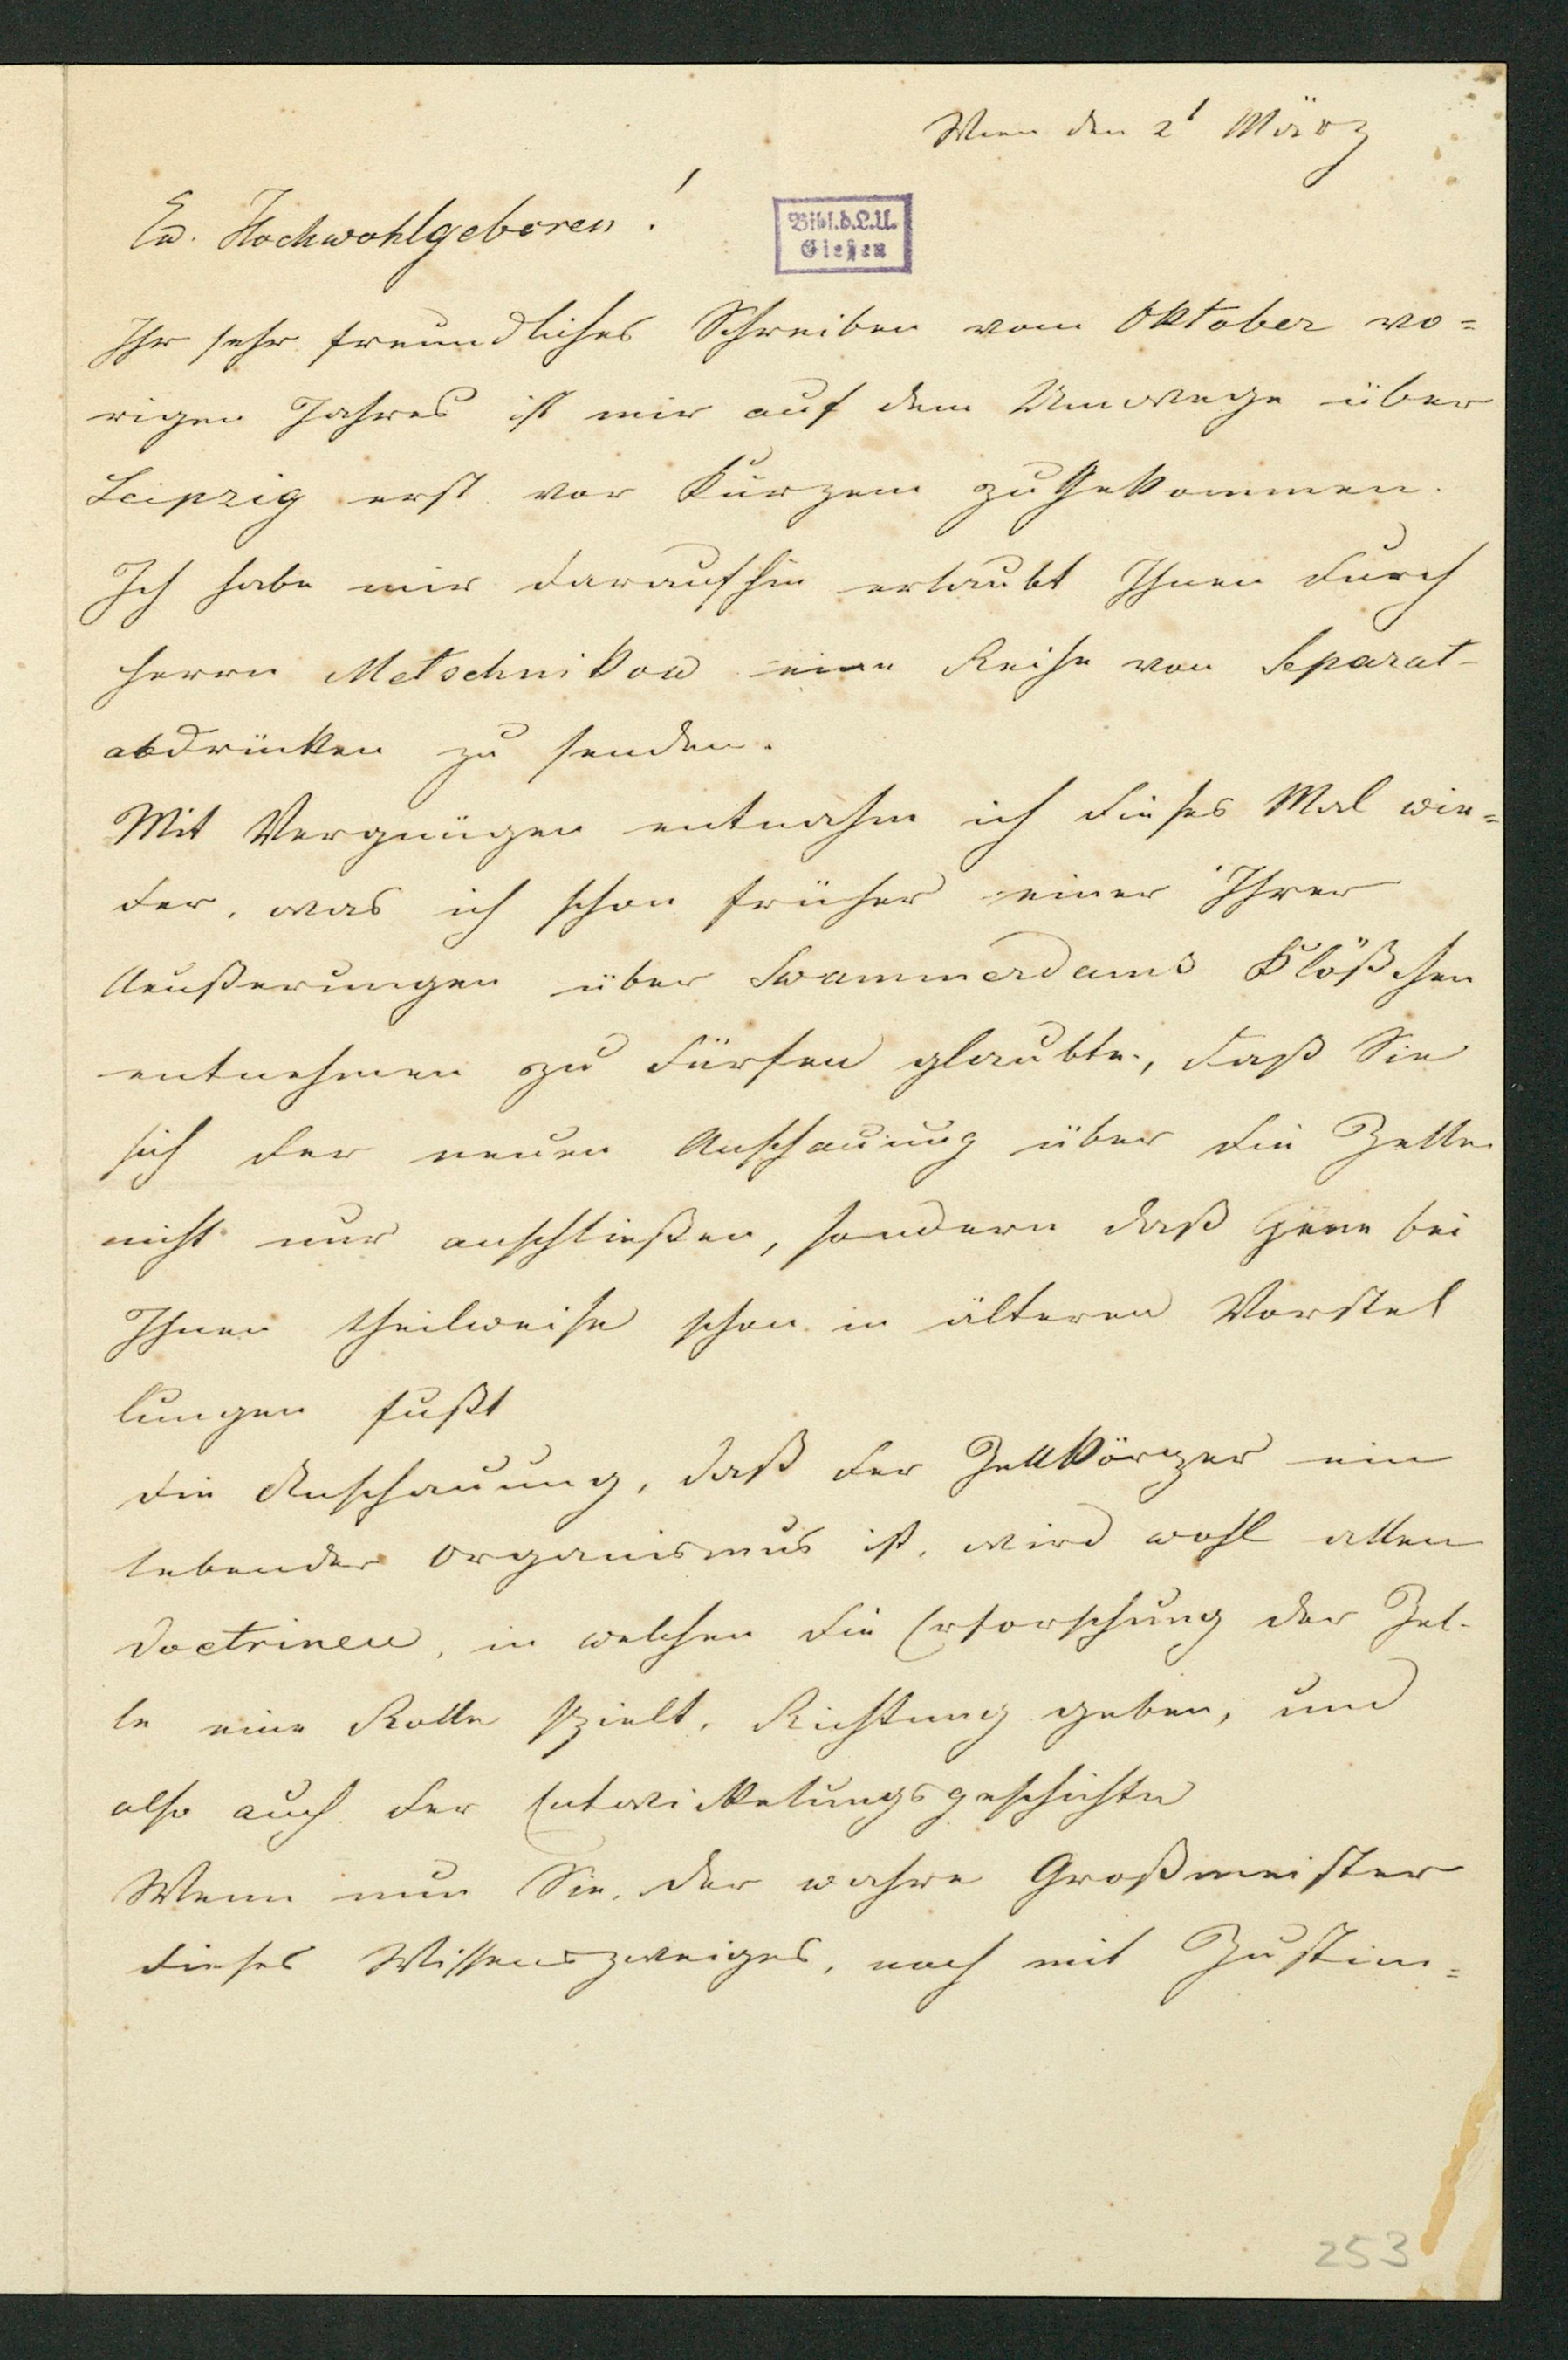 Wien den 21 März
Ew. Hochwohlgeboren!
Bibl.d.L.U.
Gießen
Ihr sehr freundliches Schreiben vom Oktober vo=
rigen Jahres ist mir auf dem Umwege über
Leipzig erst vor Kurzem zugekommen.
Ich habe mir daraufhin erlaubt Ihnen durch
Herrn Metschnikow eine Reihe von Separat-
abdrücken zu senden.
Mit Vergnügen entnahm ich dieses Mal wie=
der, was ich schon früher einer Ihrer
Aeußerungen über Swammerdams Klößchen
entnehmen zu dürfen glaubte, daß Sie
sich der neuen Anschauung über die Zelle
nicht nur anschließen, sondern daß jene bei
Ihnen theilweise schon in älteren Vorstel
lungen fußt
Die Anschauung, daß der Zellkörper ein
lebender Organismus ist, wird wohl allen
Doctrinen, in welchen die Erforschung der Zel-
le eine Rolle spielt, Richtung geben, und
also auch der Entwickelungsgeschichte
Wenn nun Sie, der wahre Großmeister
dieses Wissenszweiges, noch mit Zustim=
253